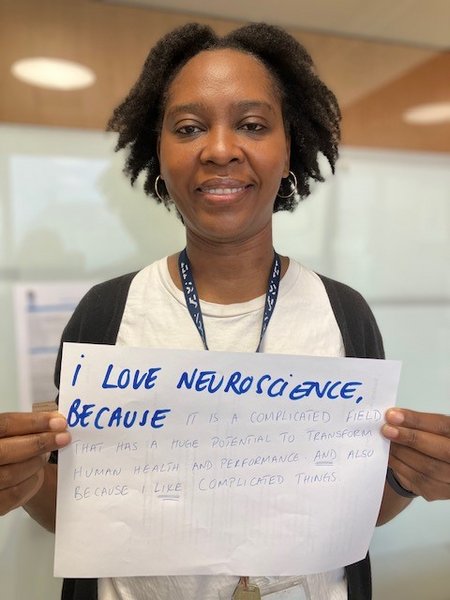 i LOVE NEUROSCiENCE,
BECAUSE IT IS A COMPLICATED FIELD
THAT HAS A HUGE POTENTIAL TO TRANSFORM
HUMAN HEALTH AND PERFORMANCE. AND ALSO
BECAUSE I LIKE COMPLICATED THINGS.